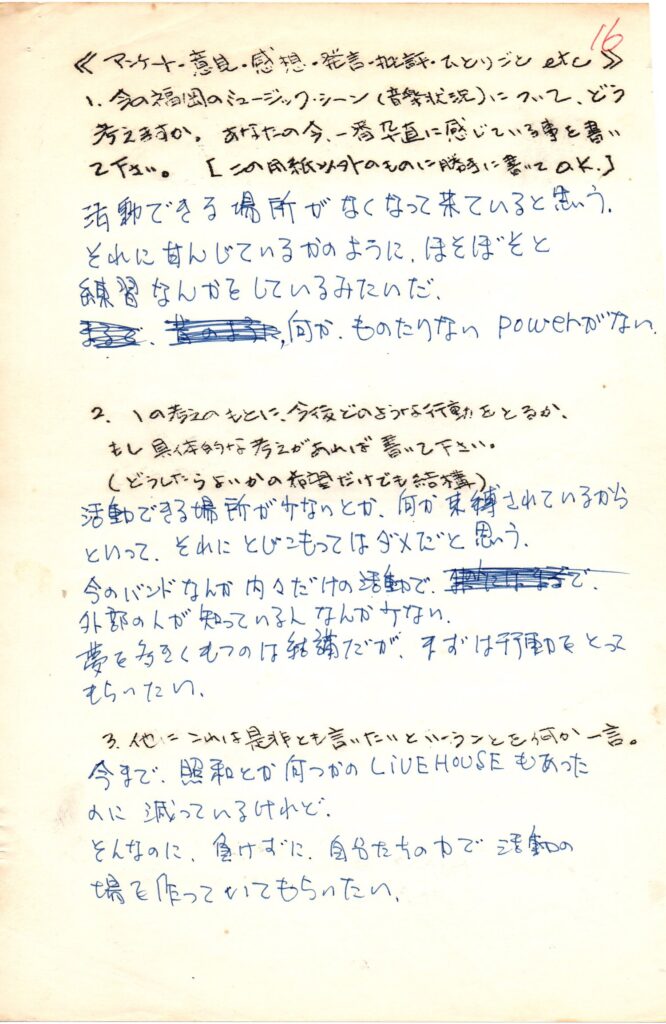 16
《 アンケート・意見・感想・発言・批評・ひとりごと etc 》
1. 今の福岡のミュージック・シーン(音楽状況)について、どう
考えますか。 あなたの今、一番卒直に感じている事を書い
て下さい。 [この用紙以外のものに勝手に書いてO.K.]
活動できる場所がなくなって来ていると思う.
それに甘んじているかのように、ほそぼそと
練習なんかをしているみたいだ.
何か.ものたりない powerがない.
2. 1の考えのもとに、今後どのような行動をとるか、
もし具体的な考えがあれば書いて下さい。
(どうしたらよいかの希望だけでも結構)
活動できる場所が少ないとか、何か束縛されているから
といって、それにとじこもってはダメだと思う.
今のバンドなんか内々だけの活動で、で.
外部の人が知っている人なんか少ない.
夢を多きくもつのは結講だが、まずは行動をとって
もらいたい.
3. 他にこれは是非とも言いたいということを何か一言。
今まで、照和とか何つかの LiVEHOUSE もあった
のに 減っているけれど.
そんなのに、負けずに、自分たちの力で 活動の
場を作っていてもらいたい.